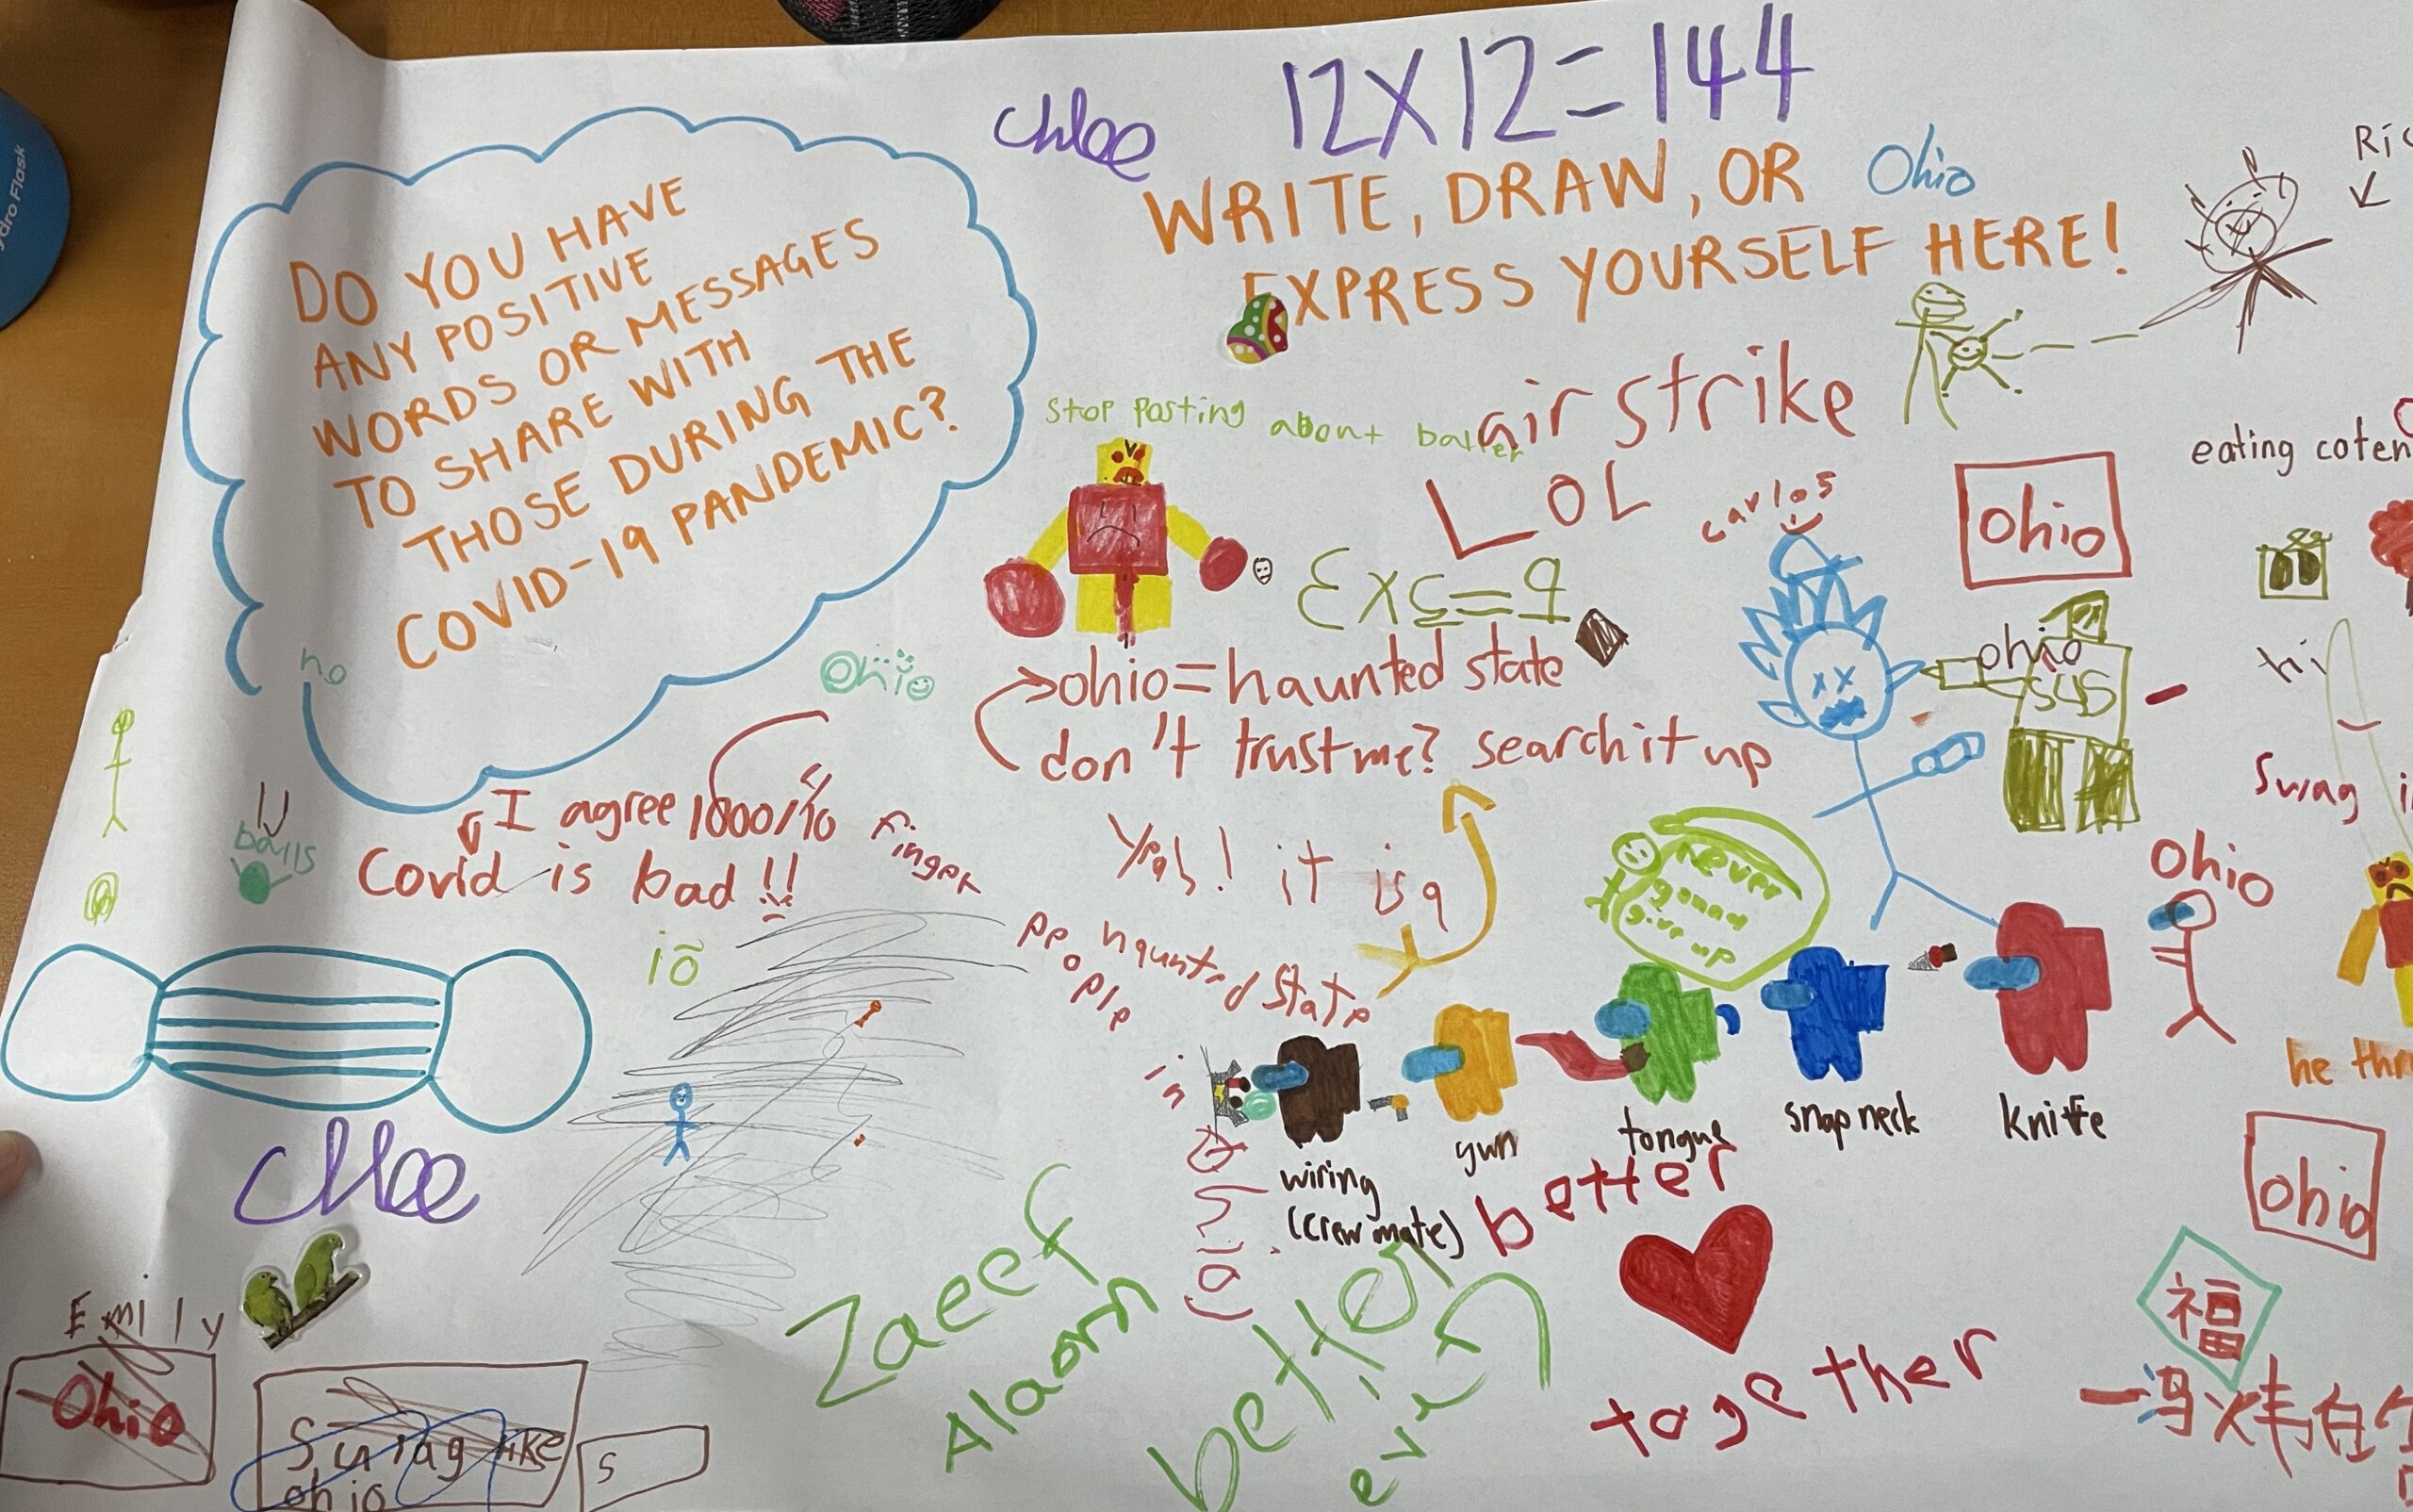 12X12=144
Chloe
WRITE, DRAW, OR
EXPRESS YOURSELF HERE!
Ohio
DO YOU HAVE
ANY POSITIVE
WORDS OR MESSAGES
TO SHARE WITH
THOSE DURING THE
COVID-19 PANDEMIC?
no
Ohio
Stop posting about baller
air strike
LOL
carlos
ohio
eating coten
3x5=9
ohio=haunted state
don't trust me? search it up
ohio
sus
hi
Swag
balls
I agree 1000/10
Covid is bad!!
Finger
Yah! it is a
haunted state
people
in
ohio
never
gonna
give up
Ohio
iõ
wiring
(crewmate)
gun
tongue
snap neck
knife
he thr
ohio
Chloe
Emily
Ohio
Swag like
ohio
s
Zaeef
Alaam
better
ever
better
together
福